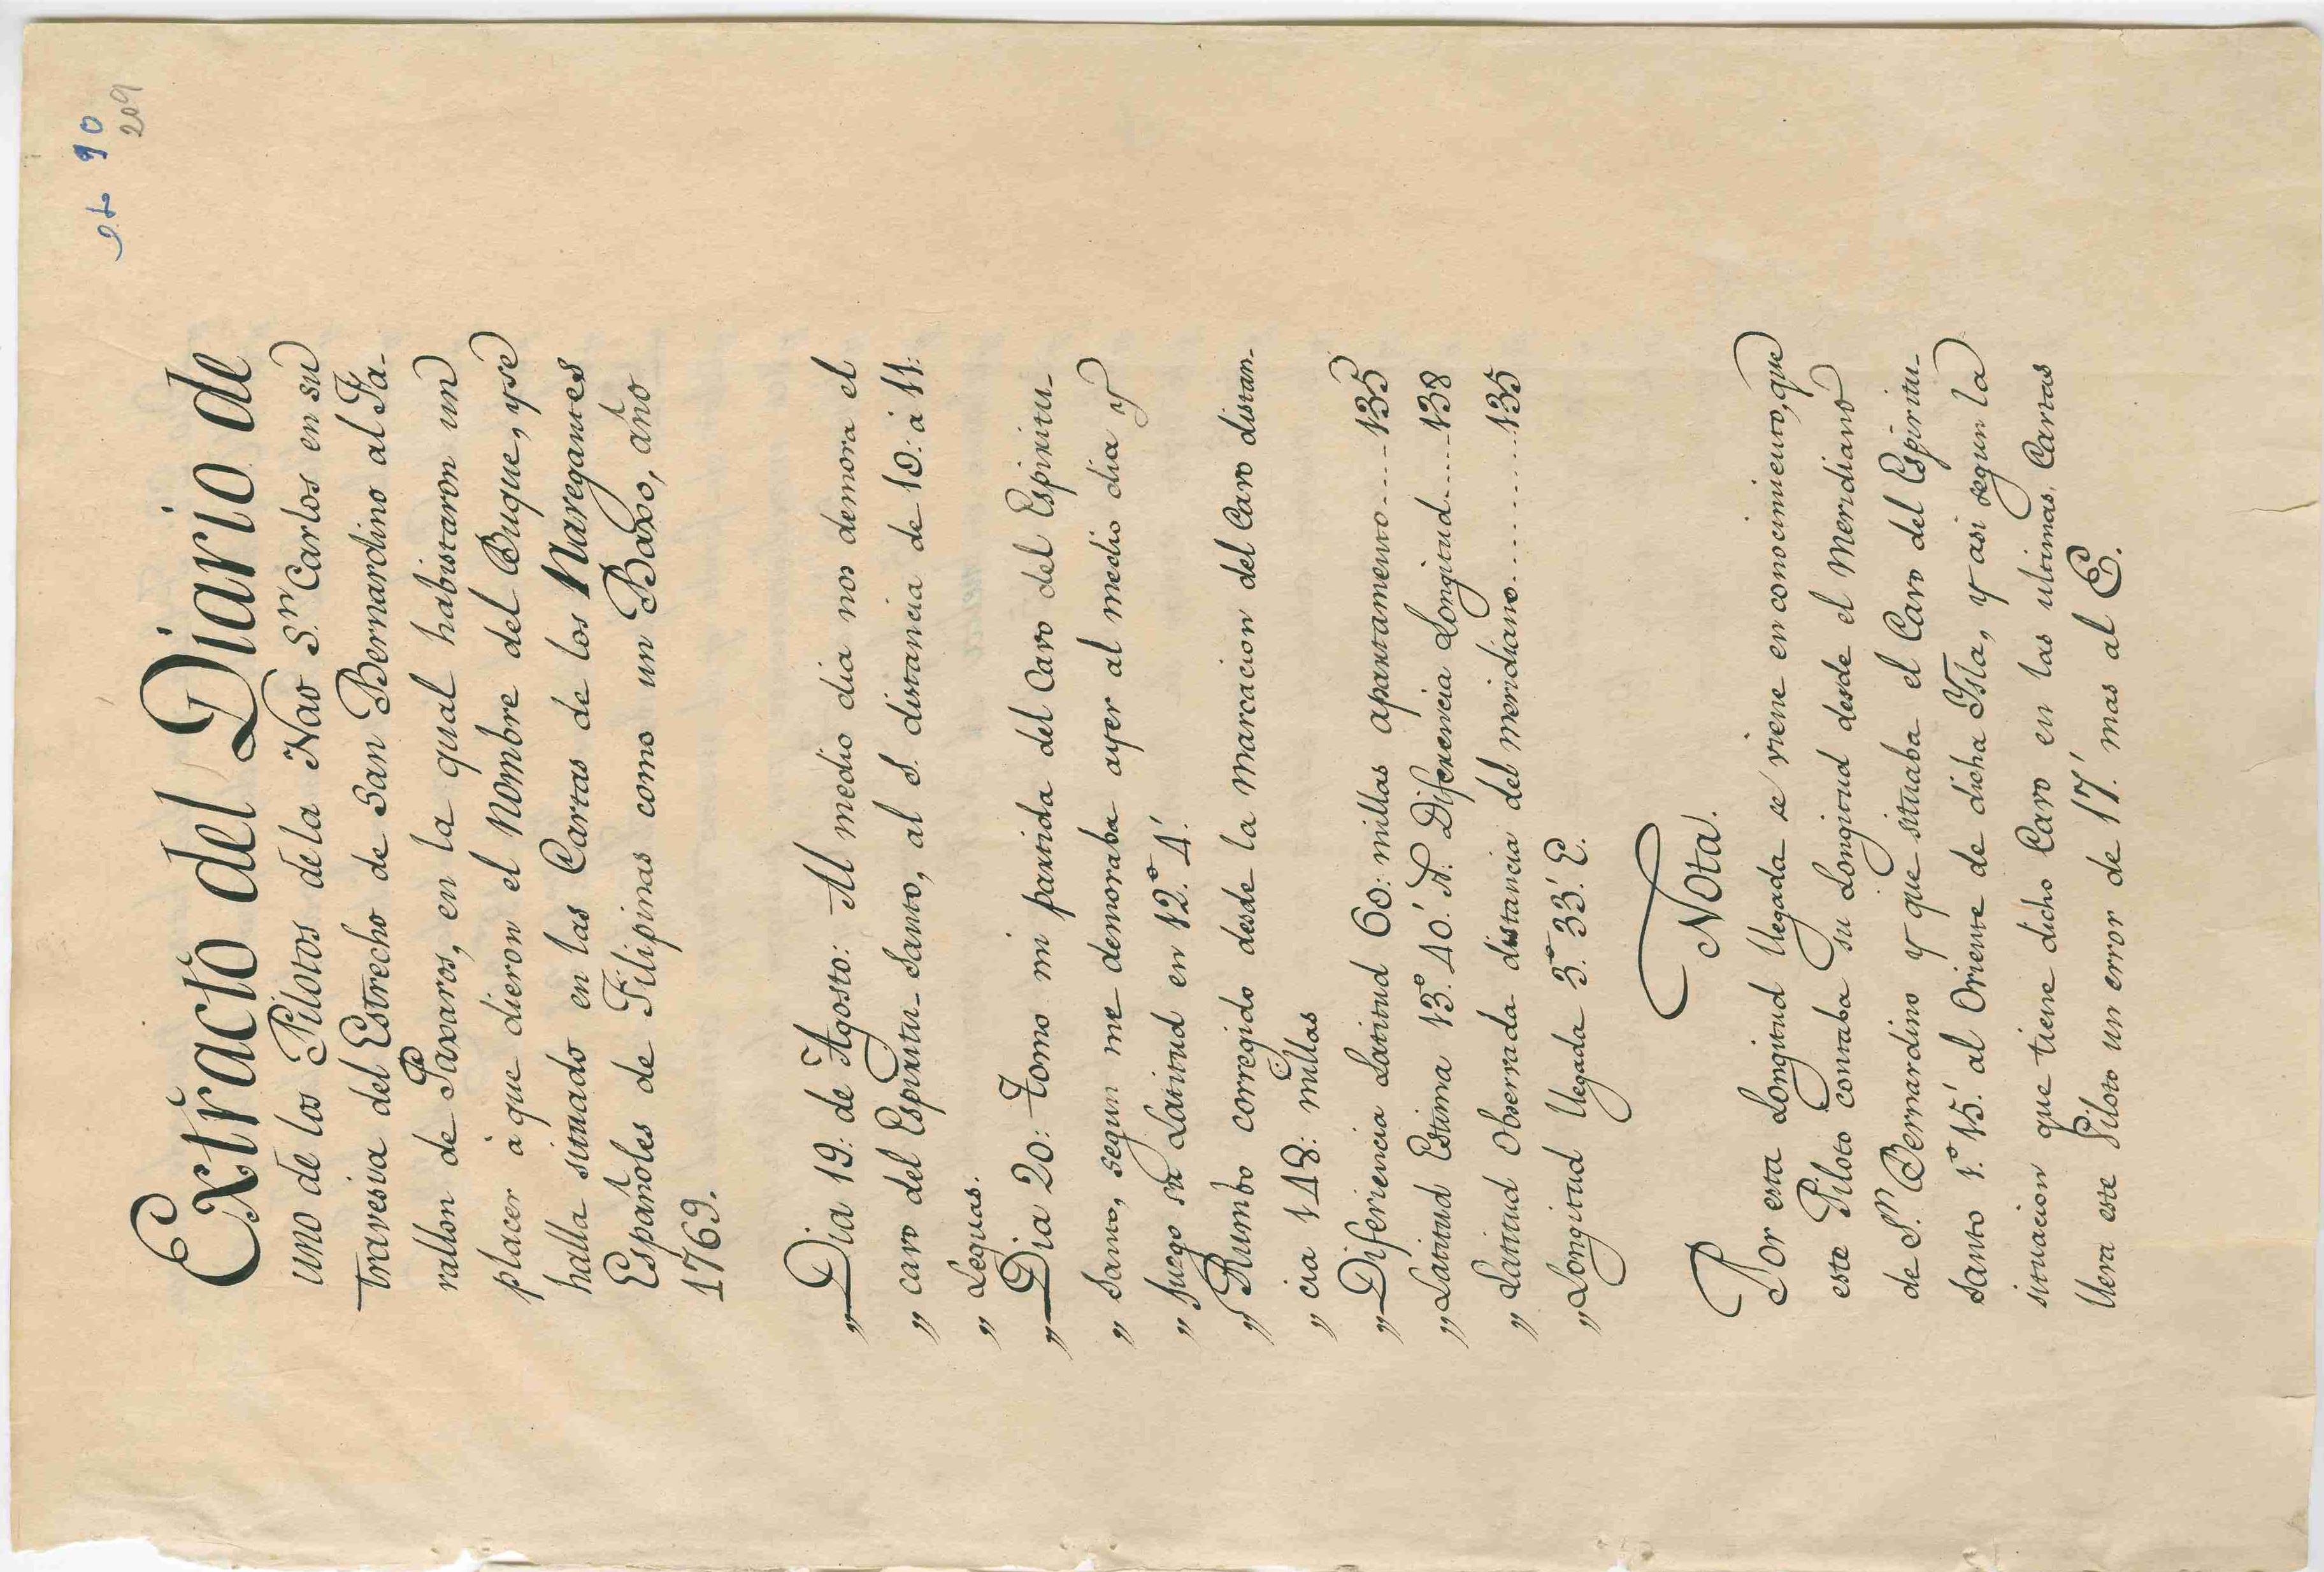 90
209
Extracto del Diario de
uno de los Pilotos de la Nao S.n Carlos en su
travesia del Estrecho de San Bernardino al Fa-
rallon de Paxaros, en la qual habistaron un
placer à que dieron el Nombre del Buque, y se
halla situado en las Cartas de los Navegantes
Españoles de Filipinas como un Baxo, año
1769.
„ Dia 19: de Agosto: Al medio dia nos demora el
„ cavo del Espiritu Santo, al S. distancia de 10: à 11:
„ Leguas.
„ Dia 20: Tomo mi partida del Cavo del Espiritu-
„ Santo, segun me demoraba ayer al medio dia y
„ juzgo su Latitud en 12.º 4.'
„ Rumbo corregido desde la marcacion del Cavo distan-
„ cia 148: millas
„ Diferiencia Latitud 60: millas apartamento ---- 135
„ Latitud Estima 13.º 40.' N: Diferencia Longitud ---- 138
„ Latitud Observada distancia del meridiano ........ 135
„ Longitud llegada 3.º 33.' E.
Nota.
Por esta Longitud llegada se viene en conocimiento, que
este Piloto contaba su Longitud desde el Meridiano
de S.n Bernardino y que situaba el Cavo del Espiritu-
Santo 1.º 15.' al Oriente de dicha Ysla, y asi segun la
situacion que tiene dicho Cavo en las ultimas Cartas
lleva este Piloto un error de 17.' mas al E.